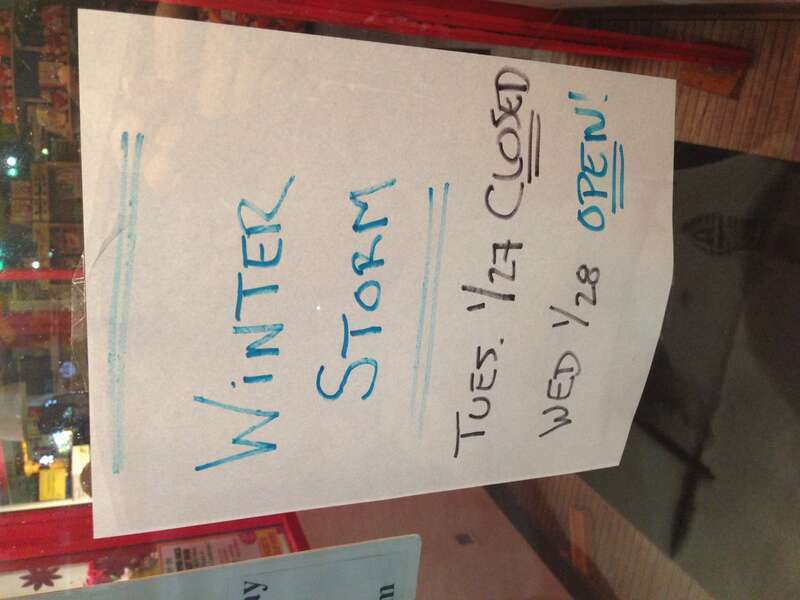 WiNTER
STORM
TUES. 1/27 CLOSED
WED 1/28 OPEN!